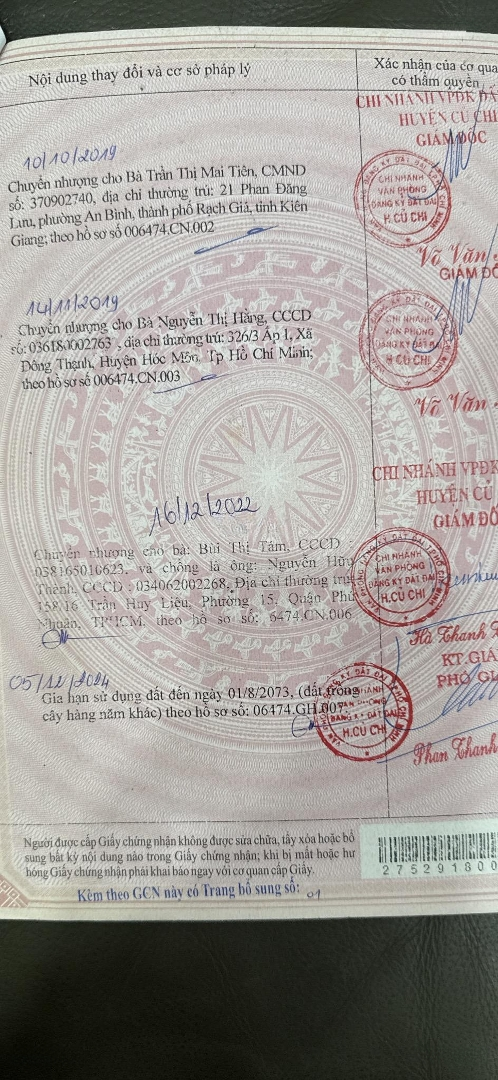 Nội dung thay đổi và cơ sở pháp lý
Xác nhận của cơ qua
có thẩm quyền
CHI NHÁNH VPĐK ĐẤ
HUYỆN CỦ CHI
GIÁM ĐỐC
10/10/2019
Chuyển nhượng cho Bà Trần Thị Mai Tiên, CMND
số: 370902740, địa chỉ thường trú: 21 Phan Đăng
Lưu, phường An Bình, thành phố Rạch Giá, tỉnh Kiên
Giang; theo hồ sơ số 006474.CN.002
CHI NHÁNH
VĂN PHÒNG
ĐĂNG KÝ ĐẤT ĐAI
H.CỦ CHI
Võ Văn
GIÁM ĐỐ
14/11/2019
Chuyển nhượng cho Bà Nguyễn Thị Hằng, CCCD
số: , địa chỉ thường trú: 326/3 Ấp 1, Xã
Đông Thạnh, Huyện Hóc Môn, Tp Hồ Chí Minh;
theo hồ sơ số 006474.CN.003
CHI NHÁNH
VĂN PHÒNG
ĐĂNG KÝ ĐẤT ĐAI
H.CỦ CHI
Võ Văn
CHI NHÁNH VPĐK
HUYỆN CỦ
GIÁM ĐỐ
16/12/2022
Chuyển nhượng cho bà: Bùi Thị Tám, CCCD :
038165016623, và chồng là ông: Nguyễn Hữu
Thành, CCCD : 034062002268, Địa chỉ thường trú:
158/16 Trần Huy Liệu, Phường 15, Quận Phú
Nhuận, TP.HCM, theo hồ sơ số: 6474.CN.006
CHI NHÁNH
VĂN PHÒNG
ĐĂNG KÝ ĐẤT ĐAI
H.CỦ CHI
Hà Thanh
KT.GIÁ
PHÓ GI
05/12/2024
Gia hạn sử dụng đất đến ngày 01/8/2073, (đất trồng
cây hàng năm khác) theo hồ sơ số: 06474.GH.007.
CHI NHÁNH
VĂN PHÒNG
ĐĂNG KÝ ĐẤT ĐAI
H.CỦ CHI
Phan Thanh
Người được cấp Giấy chứng nhận không được sửa chữa, tẩy xóa hoặc bổ
sung bất kỳ nội dung nào trong Giấy chứng nhận; khi bị mất hoặc hư
hỏng Giấy chứng nhận phải khai báo ngay với cơ quan cấp Giấy.
275291800
Kèm theo GCN này có Trang bổ sung số: 01